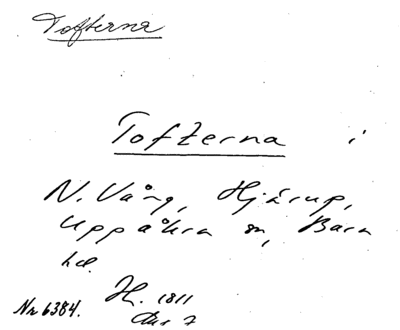 Tofterna
Tofterna i
N. Vång, Hjärup,
Uppåkra sn, Bara
hd.
H. 1811
Nr 6384.